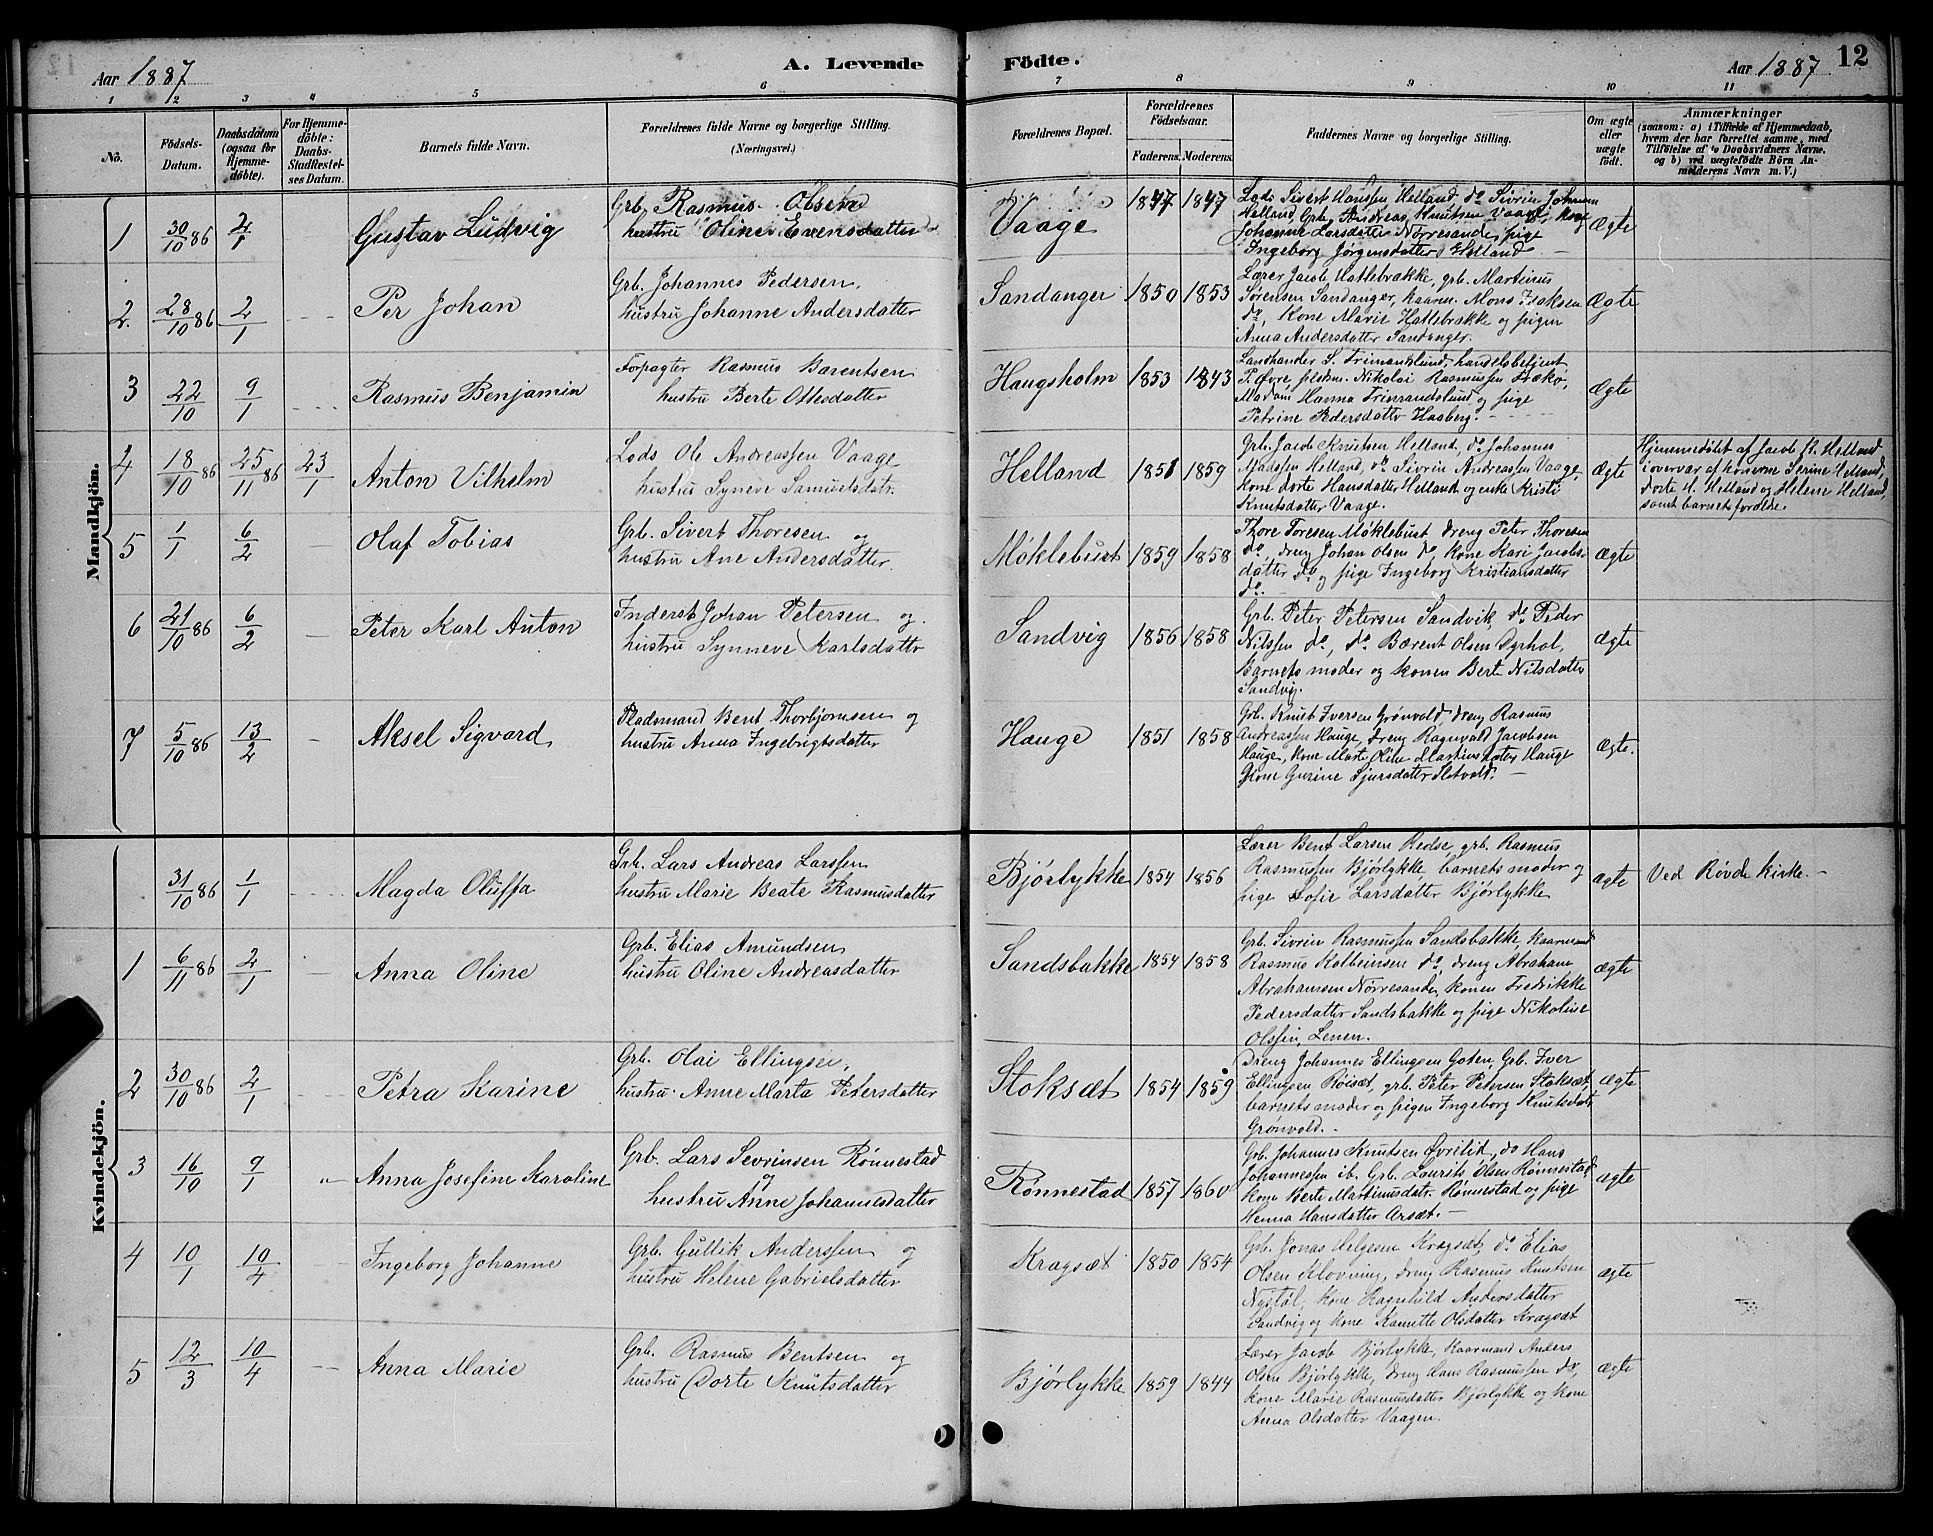 Aar 1887
A. Levende Födte.
Aar 1887
12
1 2 3 4 5 6 7 8 9 10 11
No.
Födsels-Datum.
Daabsdatum (ogsaa for Hjemme-döbte).
For Hjemme-döbte: Daabs-Stadfæstel-ses Datum.
Barnets fulde Navn.
Forældrenes fulde Navne og borgerlige Stilling.
(Næringsvei.)
Forældrenes Bopæl.
Forældrenes Födselsaar.
Faderens. Moderens.
Faddernes Navne og borgerlige Stilling.
Om ægte eller uægte födt.
Anmærkninger
(saasom: a) i Tilfælde af Hjemmedaab,
hvem der har forrettet samme, med
Tilföielse af to Daabsvidners Navne,
og b) ved uægtefödte Börn An-
melderens Navn m. V.)
Mandkjön.
1 30/10 86 2/1 Gustav Ludvig
Grb. Rasmus Olsen
hustru Oline Evensdatter
Vaage 1847 1847
Lods Sivert Hanssen Helland, do Sivrin Johansen
Helland, Grb. Andreas Knutsen Vaage, kone
Johanne Larsdatter Nörresande, pige
Ingeborg Jörgensdatter Helland
Ægte
2. 28/10 86 2/1 Per Johan
Grb. Johannes Pedersen,
hustru Johanne Andersdatter
Sandanger 1850 1853
Lærer Jacob Hattebrække, grb. Martinus
Sörensen Sandanger, kaarm. Mons Isaksen
do, kone Marie Hattebrække og pigen
Anna Andersdatter Sandanger.
Ægte
3 22/10 9/1 Rasmus Benjamin
Forpagter Rasmus Barentsen
hustru Berte Ottesdatter
Haugsholm 1853 1843
Landhandler S. Frimanslund, handelsbetjent
P. Övre, pleiesn. Nikolai Rasmussen
Madam Hanna Frimandslund og pige
Petrine Pedersdatter Haaberg.
Ægte
4 18/10 86 25/11 86 23/1 Anton Vilhelm
Lods Ole Andreassen Vaage
hustru Syneve Samuelsdatr.
Helland 1851 1859
Grb. Jacob Knutsen Helland, do Johannes
Madssen Helland, do Sivrin Andreassen Vaage,
kone Dorte Hansdatter Helland og enke Kristi
Knutsdatter Vaage.
Ægte
Hjemmedöbt af Jacob K. Helland
i overvær af konerne Serine Helland,
Dorte H. Helland og Helene Helland,
samt barnets forældre.
5 1/1 6/2 Olaf Tobias
Grb. Sivert Thoresen og
hustru Ane Andersdatter.
Möklebust 1859 1858
Thore Toresen Möklebust, dreng Peter Thoresen
do, dreng Johan Olsen do, kone Kari Jacobs-
datter do og pige Ingeborg Kristiansdatter
do.
Ægte
6 21/10 86 6/2 Peter Karl Anton
Inderst Johan Petersen og
hustru Synneve Karlsdatter
Sandvig 1856 1858
Grb. Peter Petersen Sandvik, do Peder
Nilssen do, do Bærent Olsen Dyrhol,
barnets moder og konen Berte Nilsdatter
Sandvig.
Ægte
7 5/10 86 13/2 Aksel Sigvard
Pladsmand Bent Thorbjornsen og
hustru Anna Ingebrigtsdatter
Hauge 1851 1858
Grb. Knut Iversen Grönvold, dreng Rasmus
Andreassen Hauge, dreng Ragnvald Jacobsen
Hauge, kone Marte Oline Martinusdatter Hauge
Kone Gurine Sjursdatter Slotvold.
Ægte.
Kvindekjön.
31/10 86 1/1 Magda Oluffa
Grb. Lars Andreas Larssen
hustru Marie Beate Rasmusdatter
Björlykke 1854 1856
Lærer Bent Larsen Redse, grb. Rasmus
Rasmussen Björlykke, barnets moder og
pige Sofie Larsdatter Björlykke
ægte
Ved Rövde kirke.
1 6/11 86 2/1 Anna Oline
Grb. Elias Amundsen
hustru Oline Andreasdatter
Sandsbakke 1854 1858
Grb. Sivrin Rasmussen Sandsbakke, kaarmand
Rasmus Kolbeinsen do, dreng Abraham
Abrahamsen Nörresande, konen Fredrikke
Pedersdatter Sandsbakke og pige Nikoline
Olssen, Lenen.
ægte
2 30/10 86 2/1 Petra Karine
Grb. Olai Ellingsen,
hustru Anne Marta Petersdatter
Stoksæt 1854 1859
Dreng Johannes Ellingsen Goten, Grb. Iver
Ellingsen Röisæt, grb. Peter Petersen Stoksæt,
barnets moder og pigen Ingeborg Knutsdatr
Grönvold.
ægte
3 16/10 9/1 Anna Josefine Karoline
Grb. Lars Sevrinsen Rönnestad
og
hustru Anne Johannesdatter
Rönnestad 1857 1860
Grb. Johannes Knutsen Övrelid, do Hans
Johannessen ib. Grb. Laurits Olsen Rönnestad,
kone Berte Martinusdatr. Rönnestad og pige
Henna Hansdatter Aarsæt.
ægte
4 10/1 10/4 Ingeborg Johanne
Grb. Gullik Anderssen og
hustru Helene Gabrielsdatter
Kragsæt 1850 1854
Grb. Jonas Helgesen Kragsæt, do Elias
Olsen Klovning, dreng Rasmus Knutsen
Nystöl, kone Ragnhild Andersdatter
Sandvig og kone Kanutte Olsdatter Kragsæt
ægte
5 12/3 10/4 Anna Marie
Grb. Rasmus Bentsen og
hustru Dorte Knutsdatter
Björlykke 1859 1844
Lærer Jacob Björlykke, Kaarmand Anders
Olsen Björlykke, dreng Hans Rasmussen do,
kone Marie Rasmusdatter Björlykke og kone
Anna Olsdatter Vaagen.
ægte